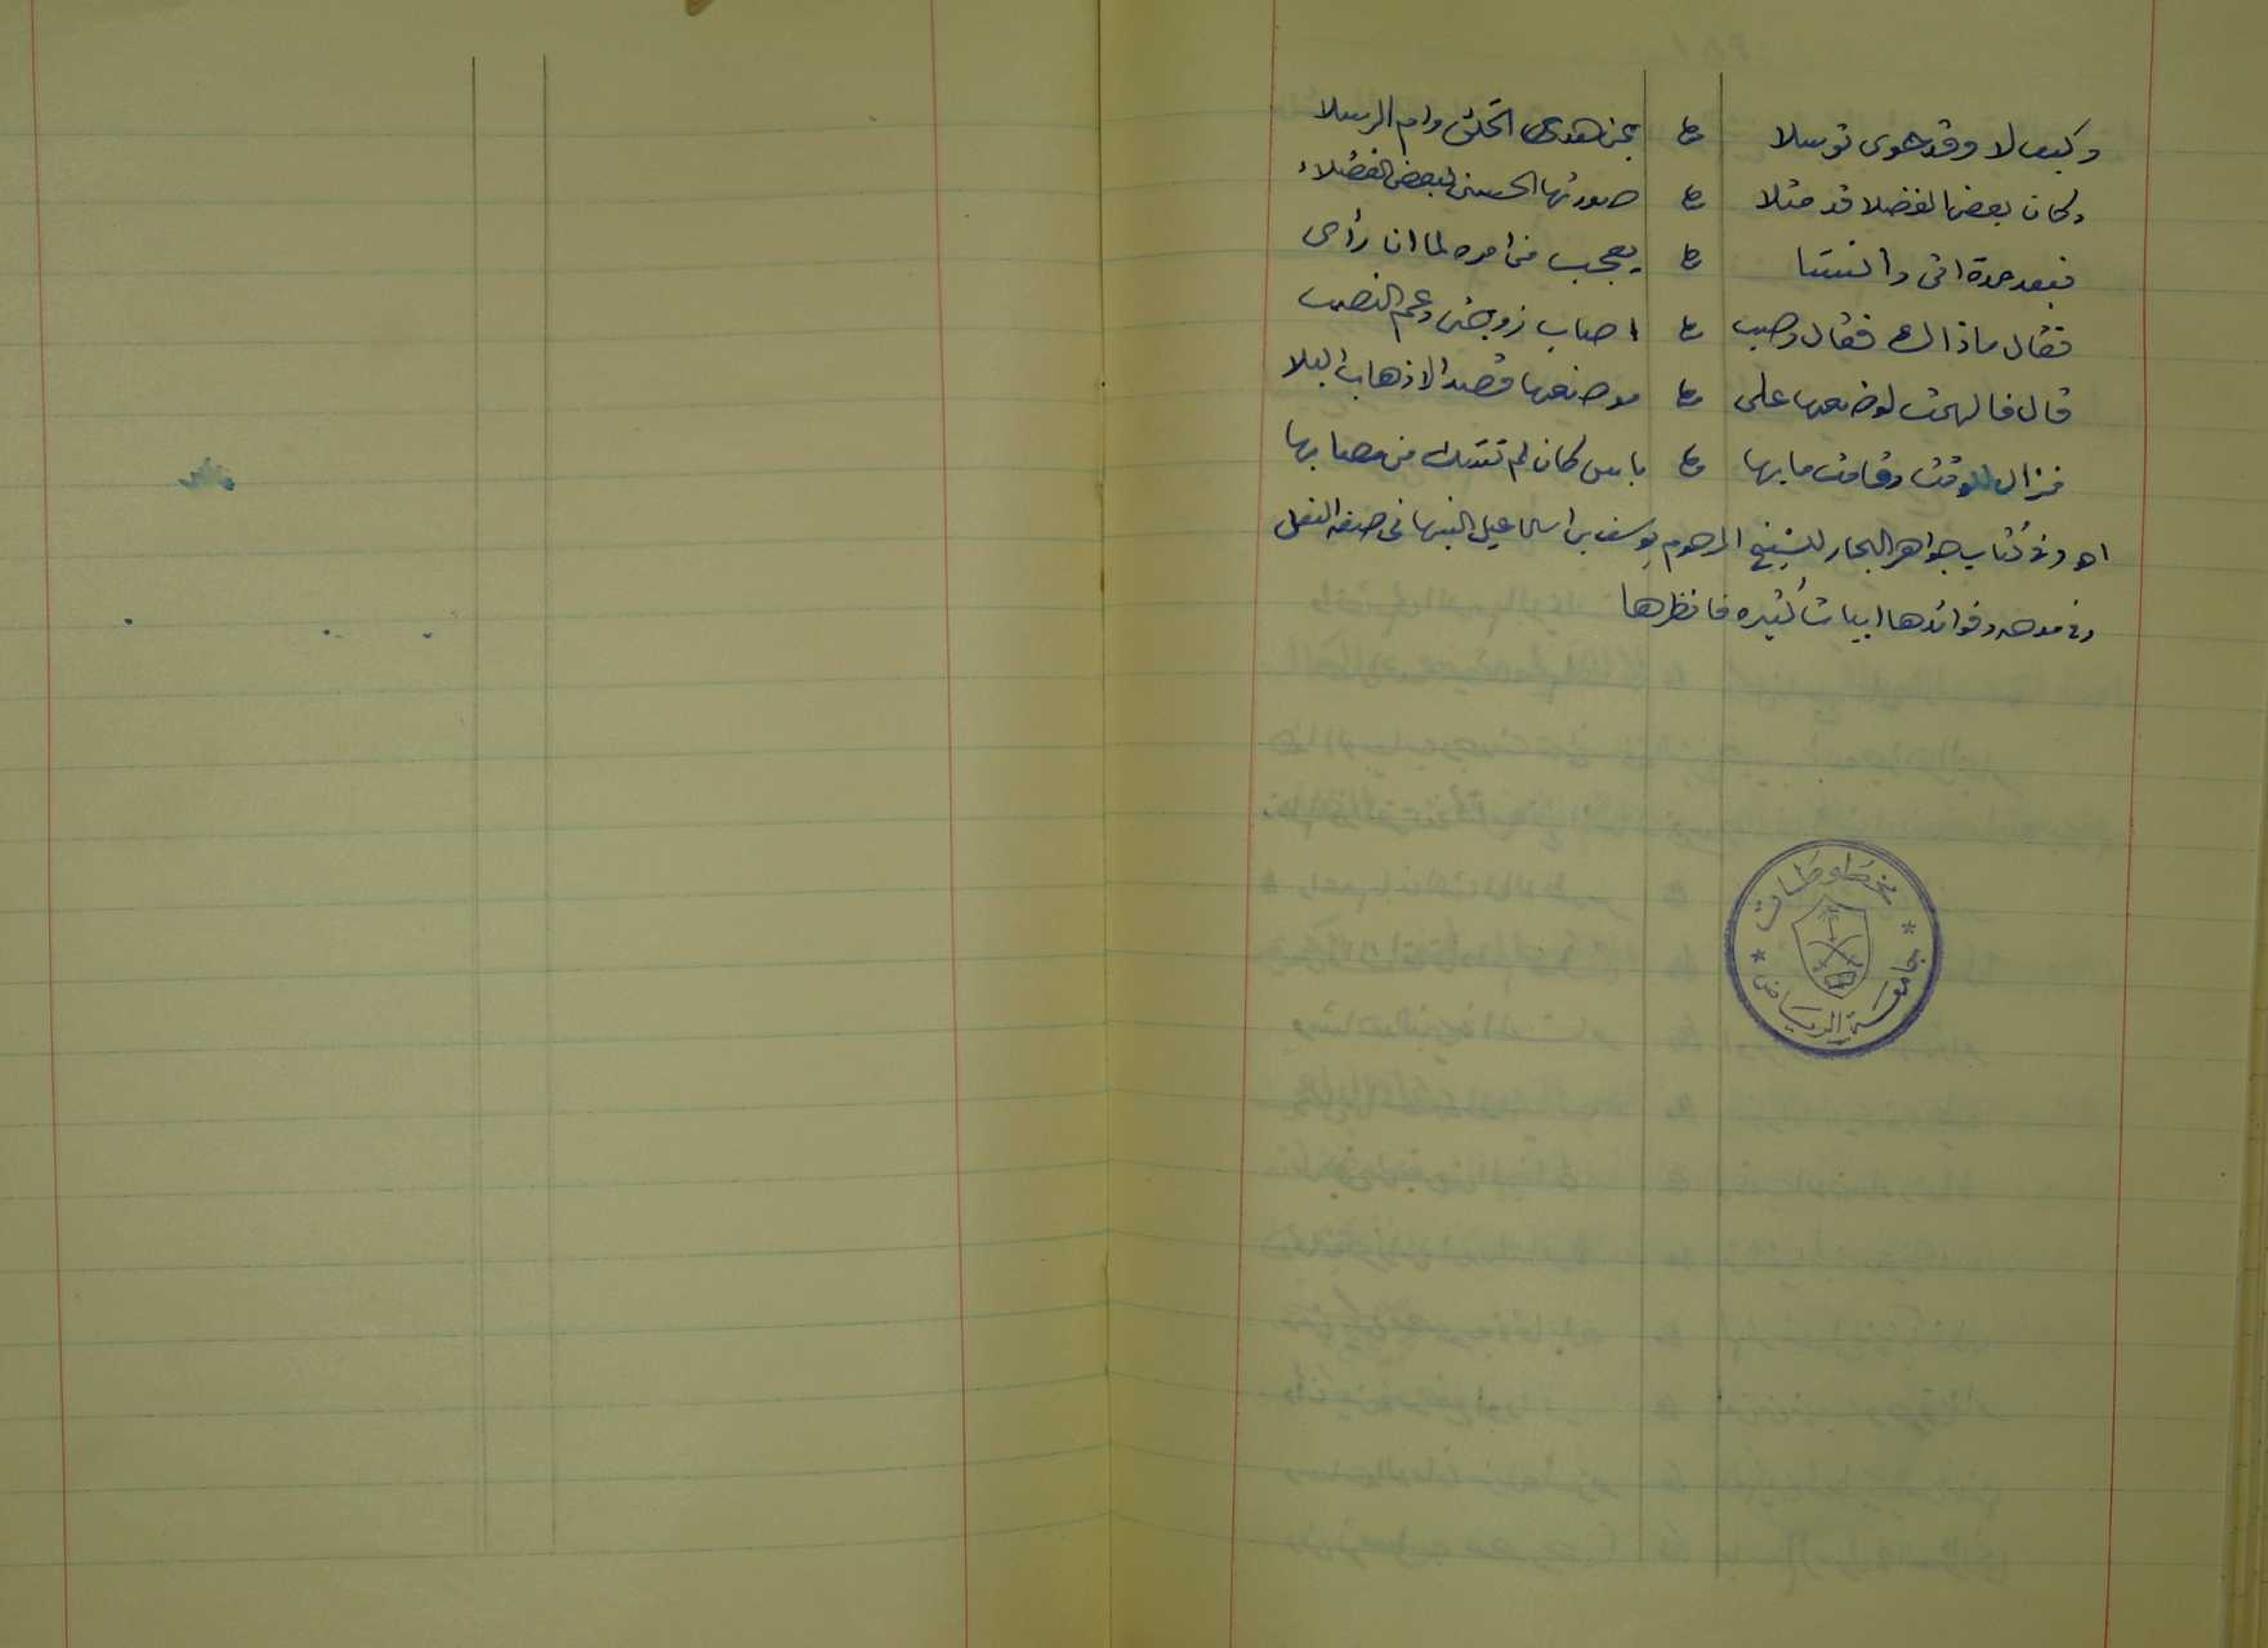 وكيف لا وقد حوى توسلا ※ بمن هدى الخلق وام الرسلا
وكان بعض الفضلا قد مثلا ※ صورتها الحسنى لبعض الفضلاء
فبعد مدة اتى وانسئا ※ يعجب من امره لما ان رأى
فقال ماذا لك فقال وصب ※ اصاب زوجتى وعم النصب
قال فالهمت لوضعها على ※ موضعها قصدا لاذهاب البلا
فزال للوقت وقامت ما بها ※ باس كان لم تشتك من مصابها
اه وفى كتاب جواهر البحار للشيخ المرحوم يوسف بن اسماعيل النبهانى صفة النعل
وفى مدحه وفوائدها ابيات كثيره فانظرها
مخطوطات
جامعة الرياض